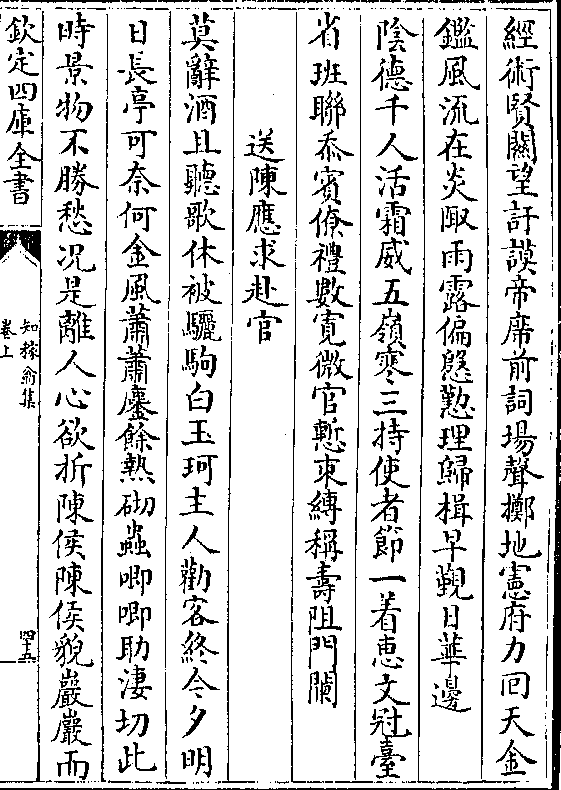 經術賢關望訏謨帝席前詞場聲擲地憲府力回天金
鑑風流在炎陬雨露偏慇懃理歸楫早覲日華邊
陰德千人活霜威五嶺寒三持使者節一着惠文冠臺
省班聯忝賓僚禮數寛微官慙束縛稱壽阻門闌
送陳應求赴官
莫辭酒且聽歌休被驪駒白玉珂主人勸客終今夕明
日長亭可奈何金風蕭蕭塵餘熱砌蟲唧唧助淒切此
時景物不勝愁况是離人心欲折陳侯陳侯貌巖巖而
欽定四庫全書
知稼翁集
卷上
四十五